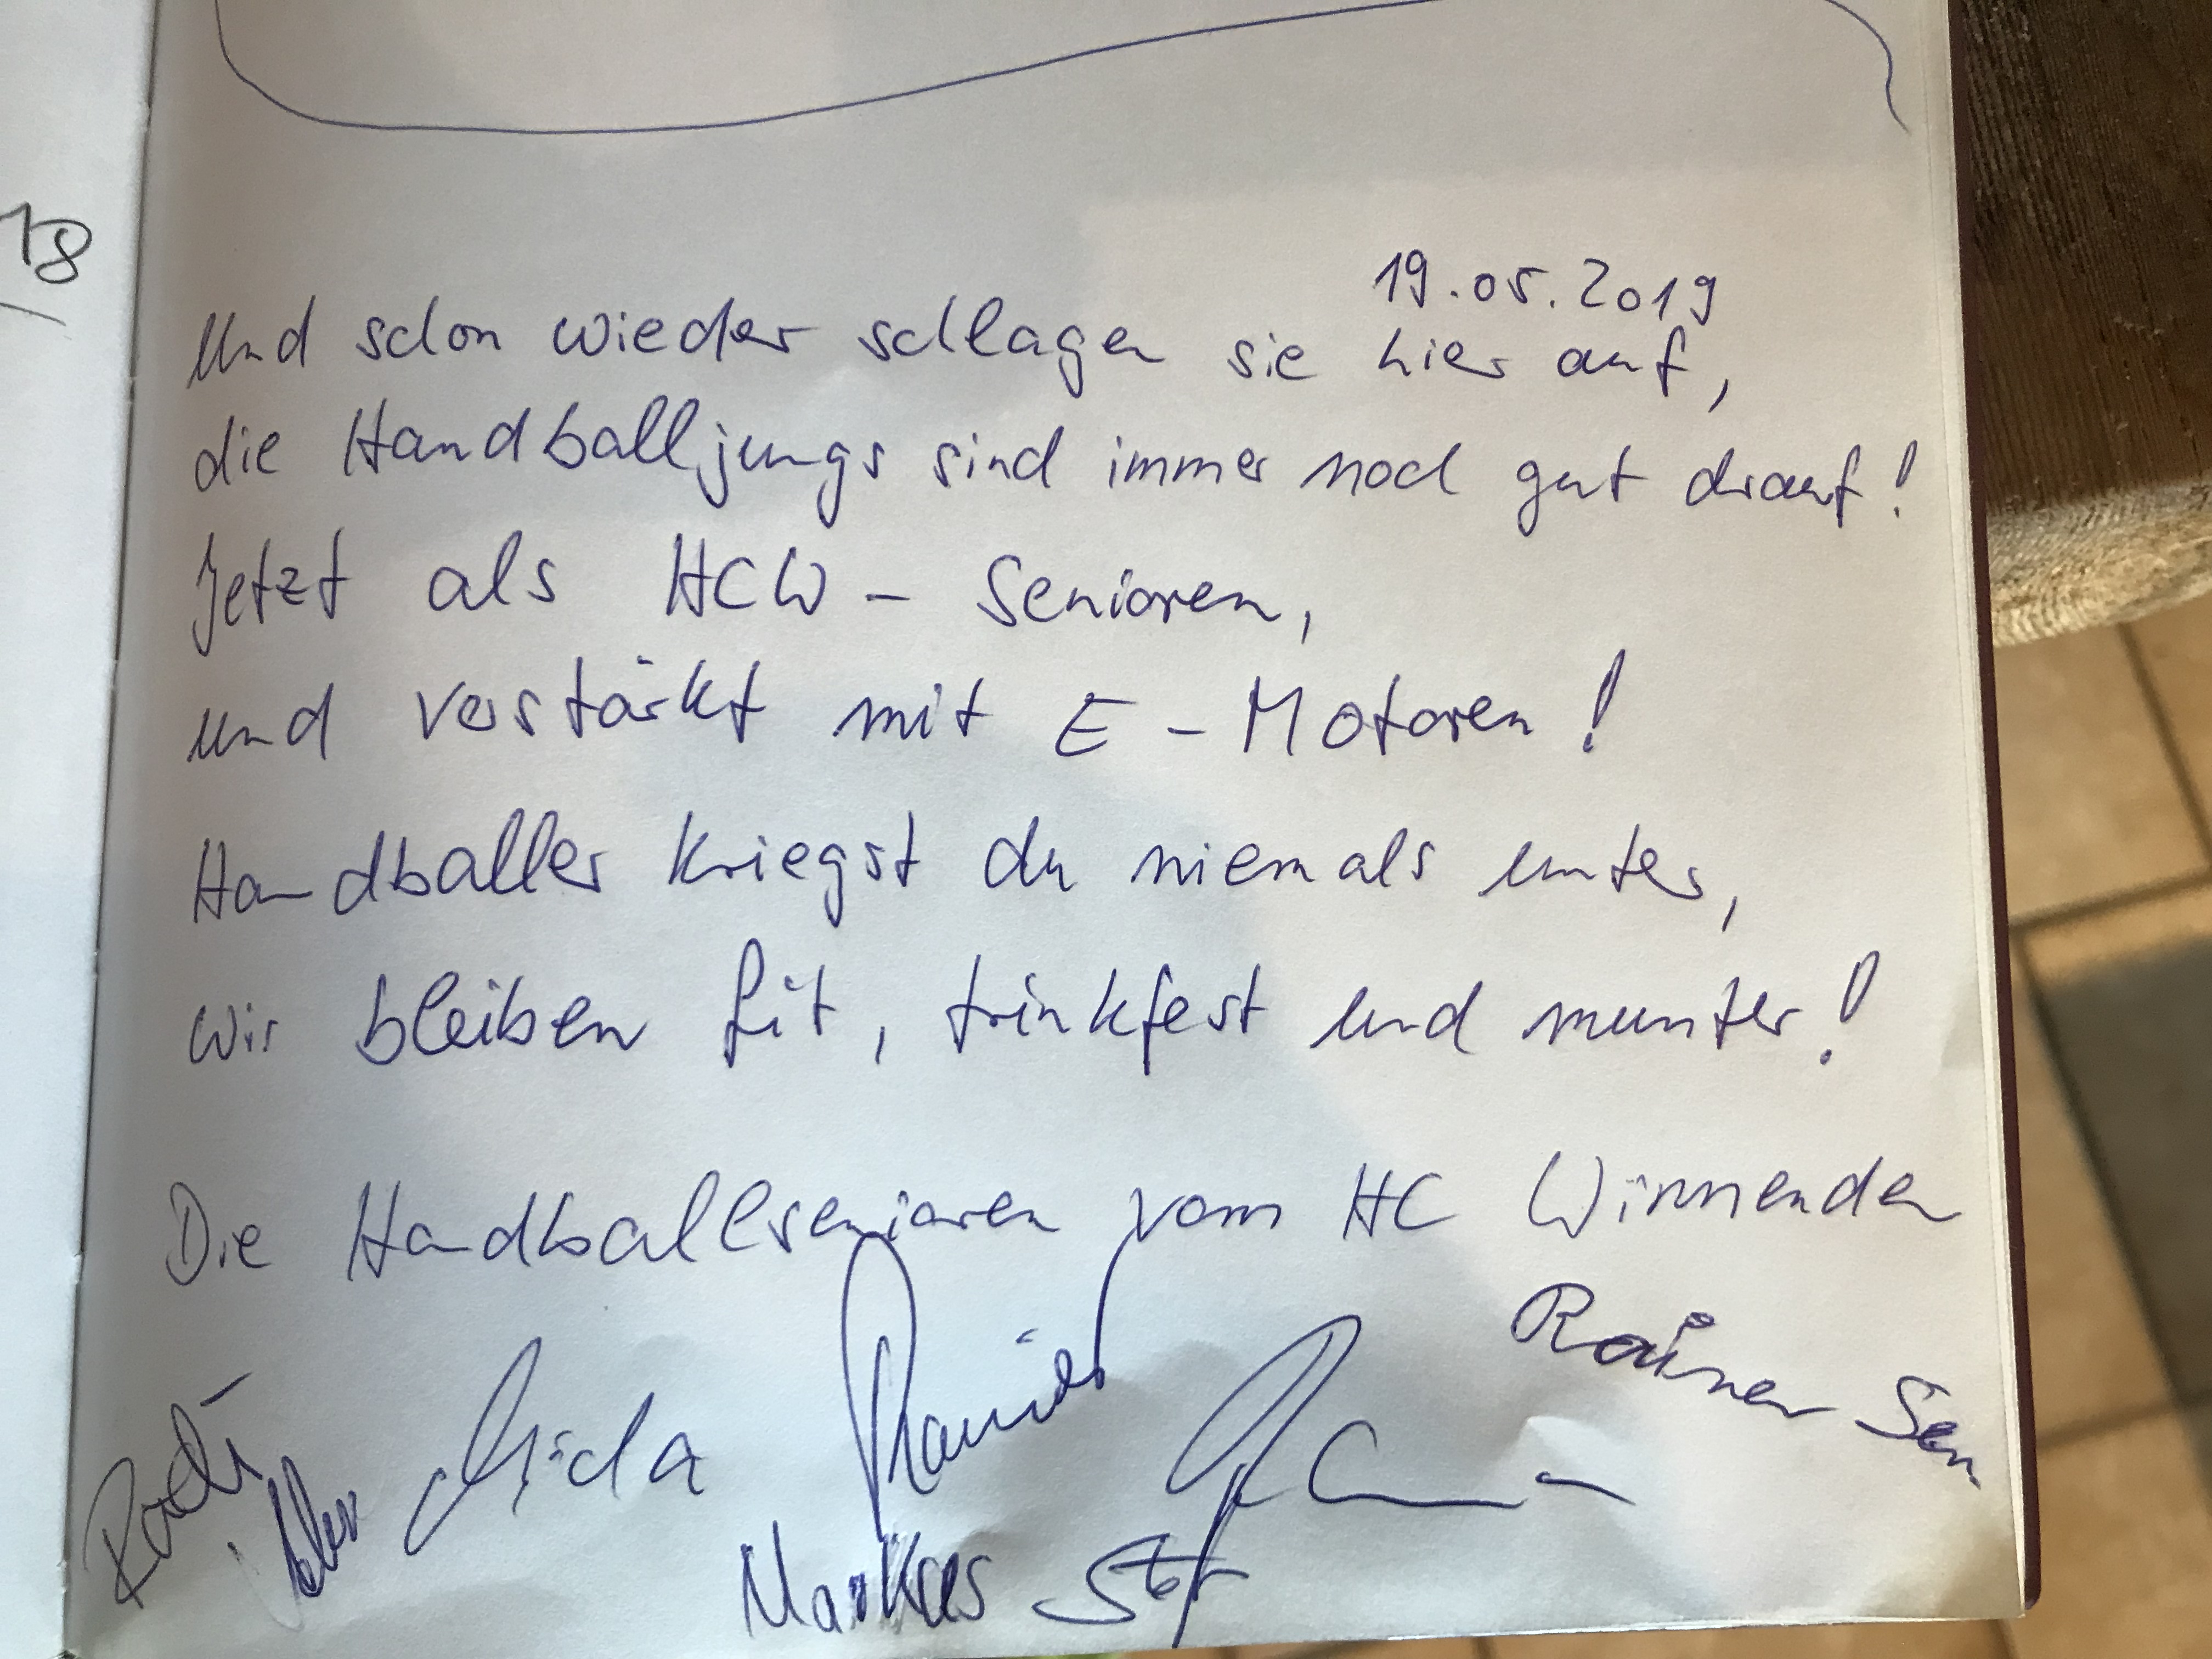 18
19.05.2019
Und schon wieder schlagen sie hier auf,
die Handballjungs sind immer noch gut drauf!
Jetzt als HCW - Senioren,
und verstärkt mit E - Motoren!
Handballer kriegst du niemals unter,
wir bleiben fit, trinkfest und munter!
Die Handballsenioren vom HC Winnenden
Rainer Sen.
Rainer
Markus